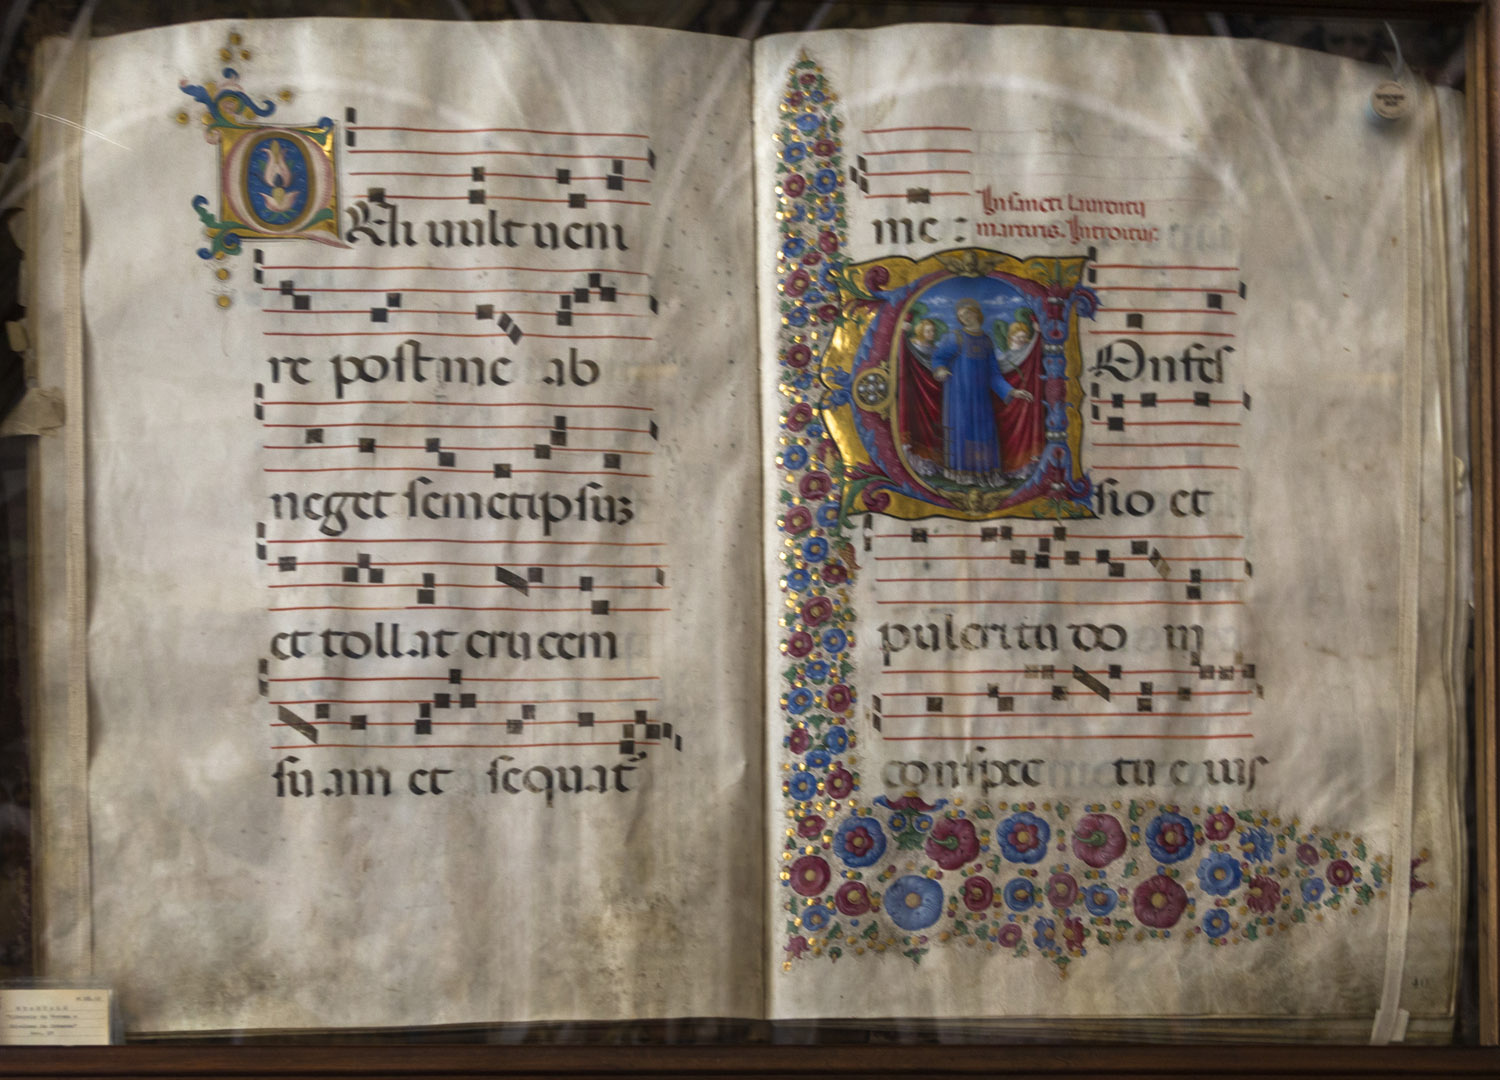 QUi uult ueni
re post me ab
neget semetipsuz
et tollat crucem
su am et sequat
me :
In sancti laurentij
martiris. Introitus.
COnfes
sio et
pulcritu do in
conspec tu e ius
GRADUALE
40